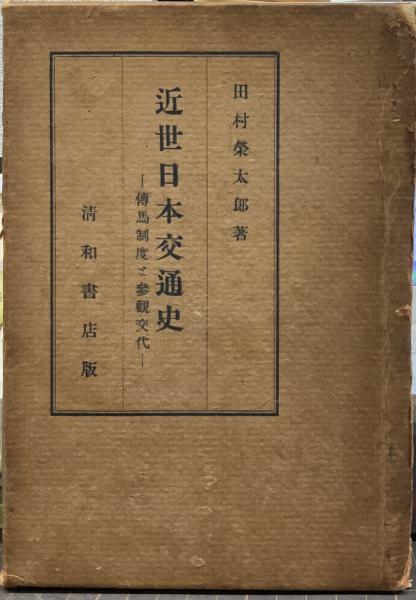 田村榮太郎著
近世日本交通史
―傳馬制度と參觀交代―
清和書店版